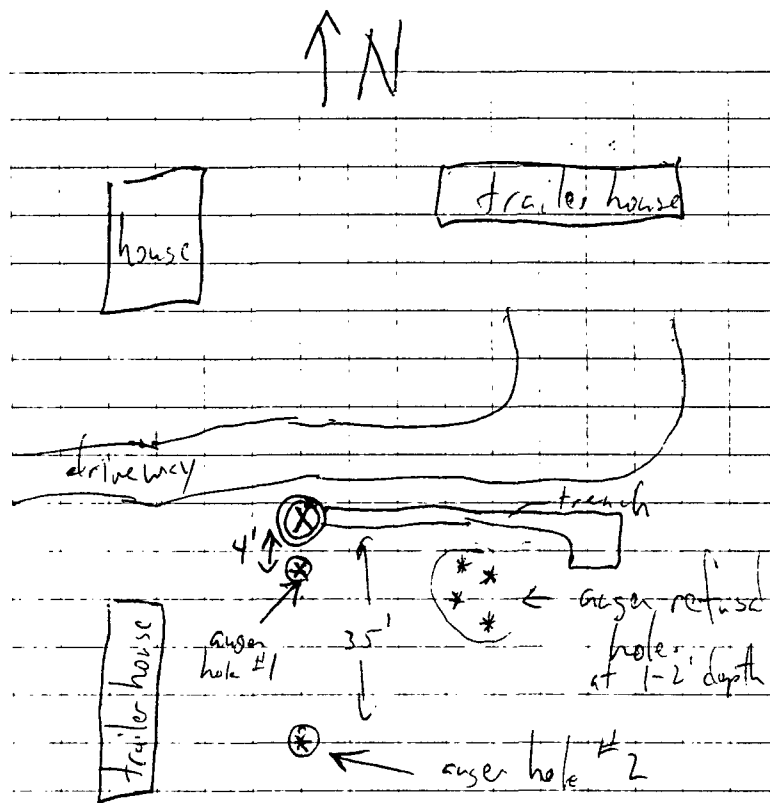 N
trailer house
house
driveway
trench
X
4'
auger
hole #1
35'
auger refusal
hole
at 1-2' depth
trailer house
auger hole #2